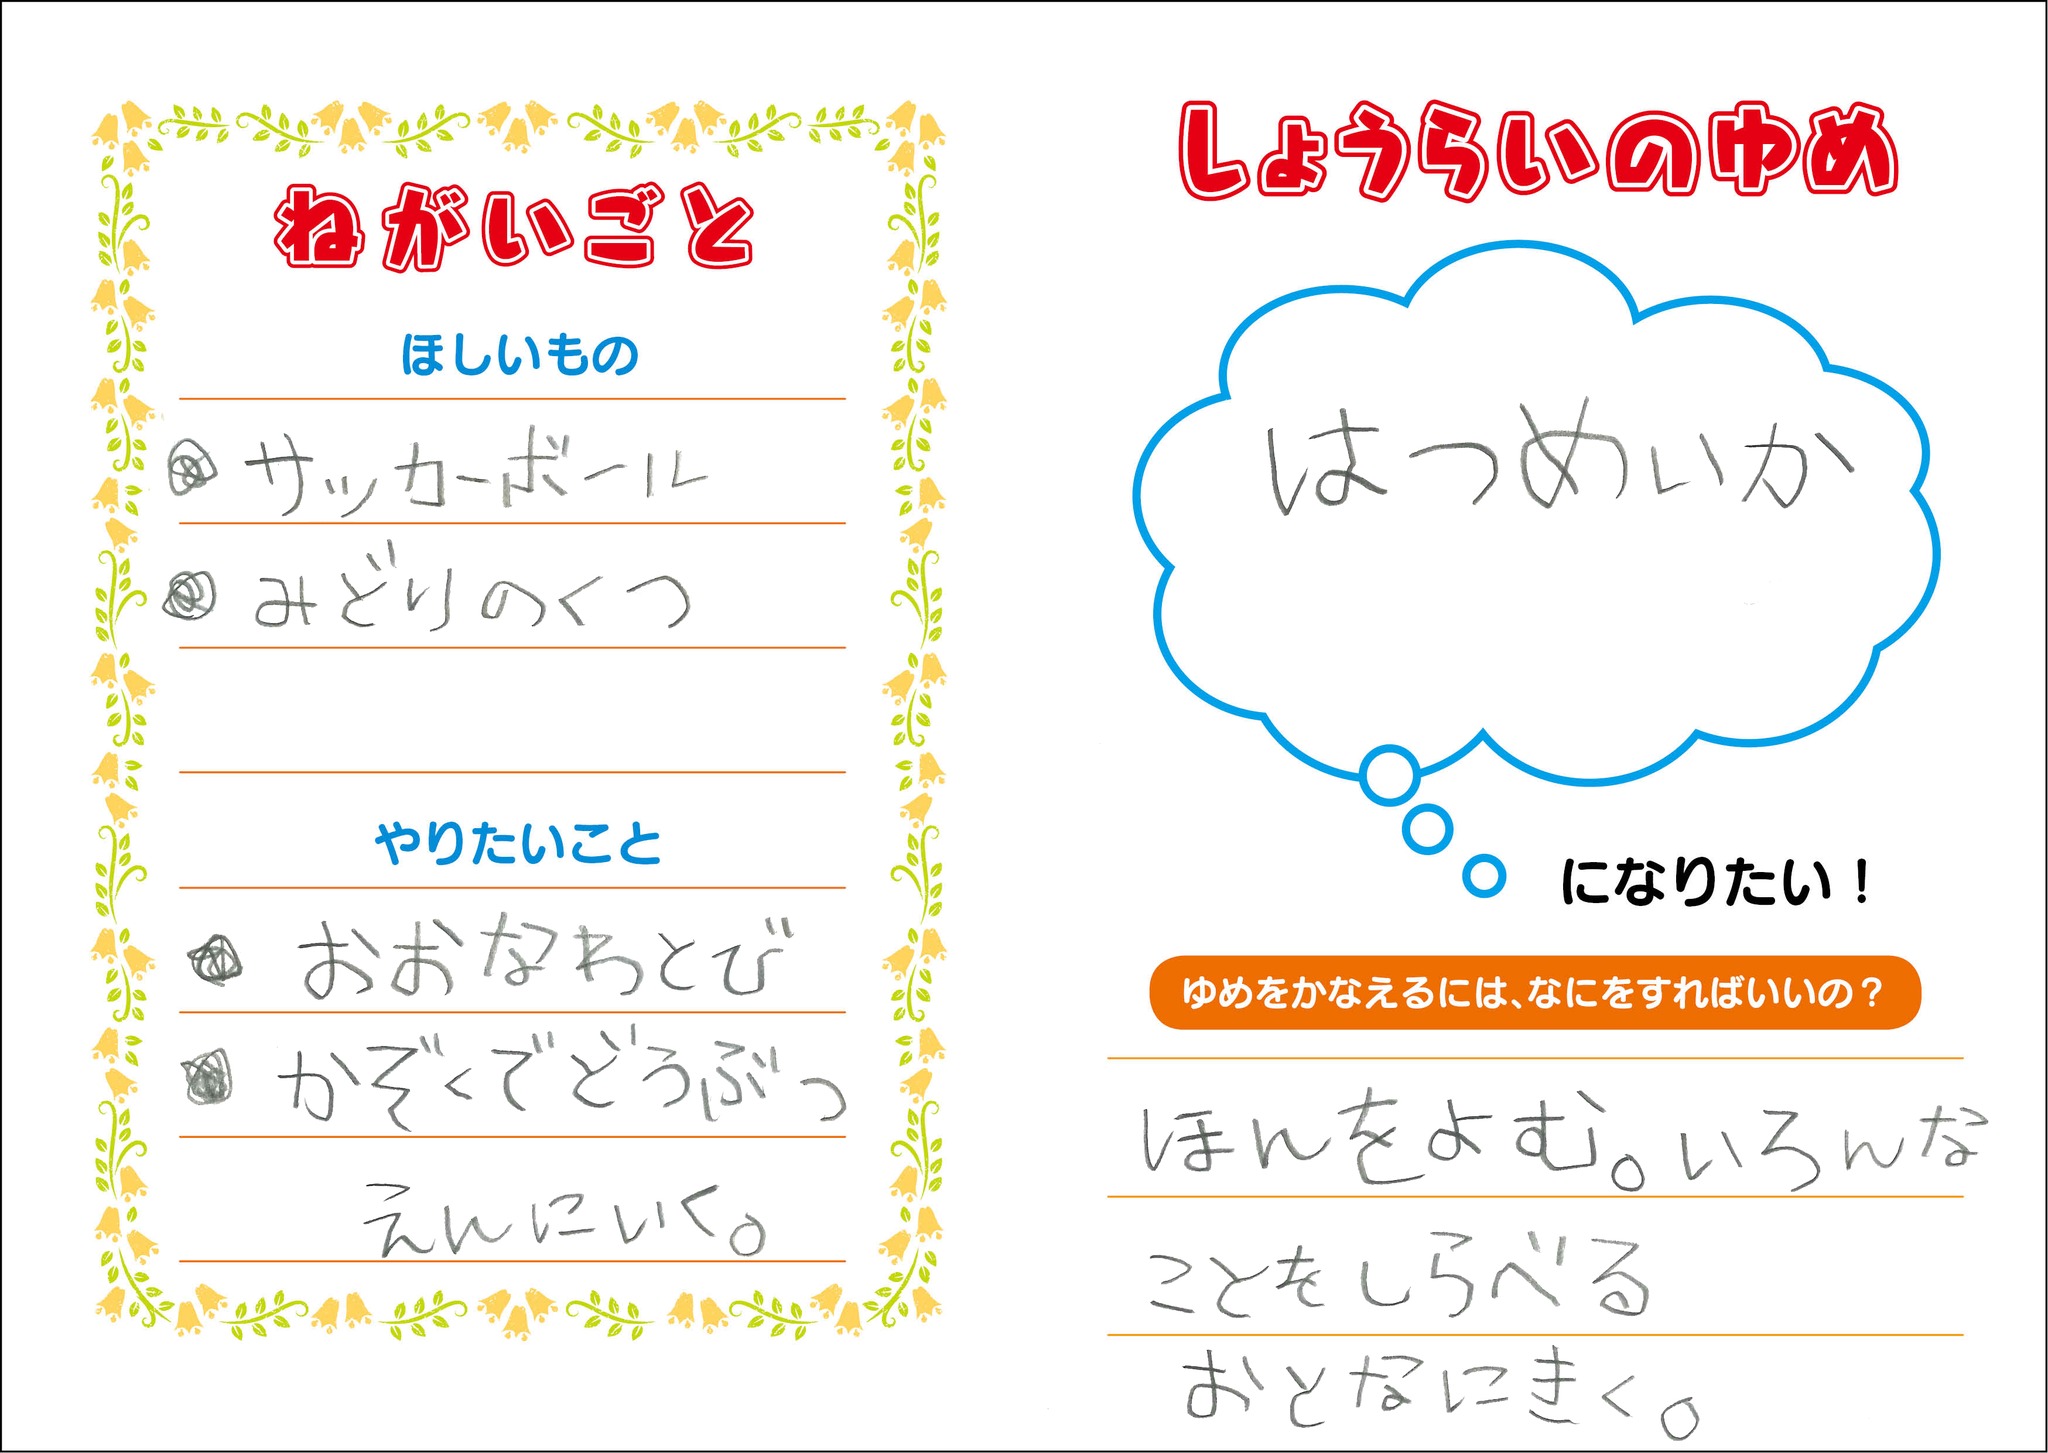 ねがいごと
ほしいもの
● サッカーボール
● みどりのくつ
やりたいこと
● おおなわとび
● かぞくでどうぶつ
えんにいく。
しょうらいのゆめ
はつめいか
になりたい！
ゆめをかなえるには、なにをすればいいの？
ほんをよむ。いろんな
ことをしらべる
おとなにきく。